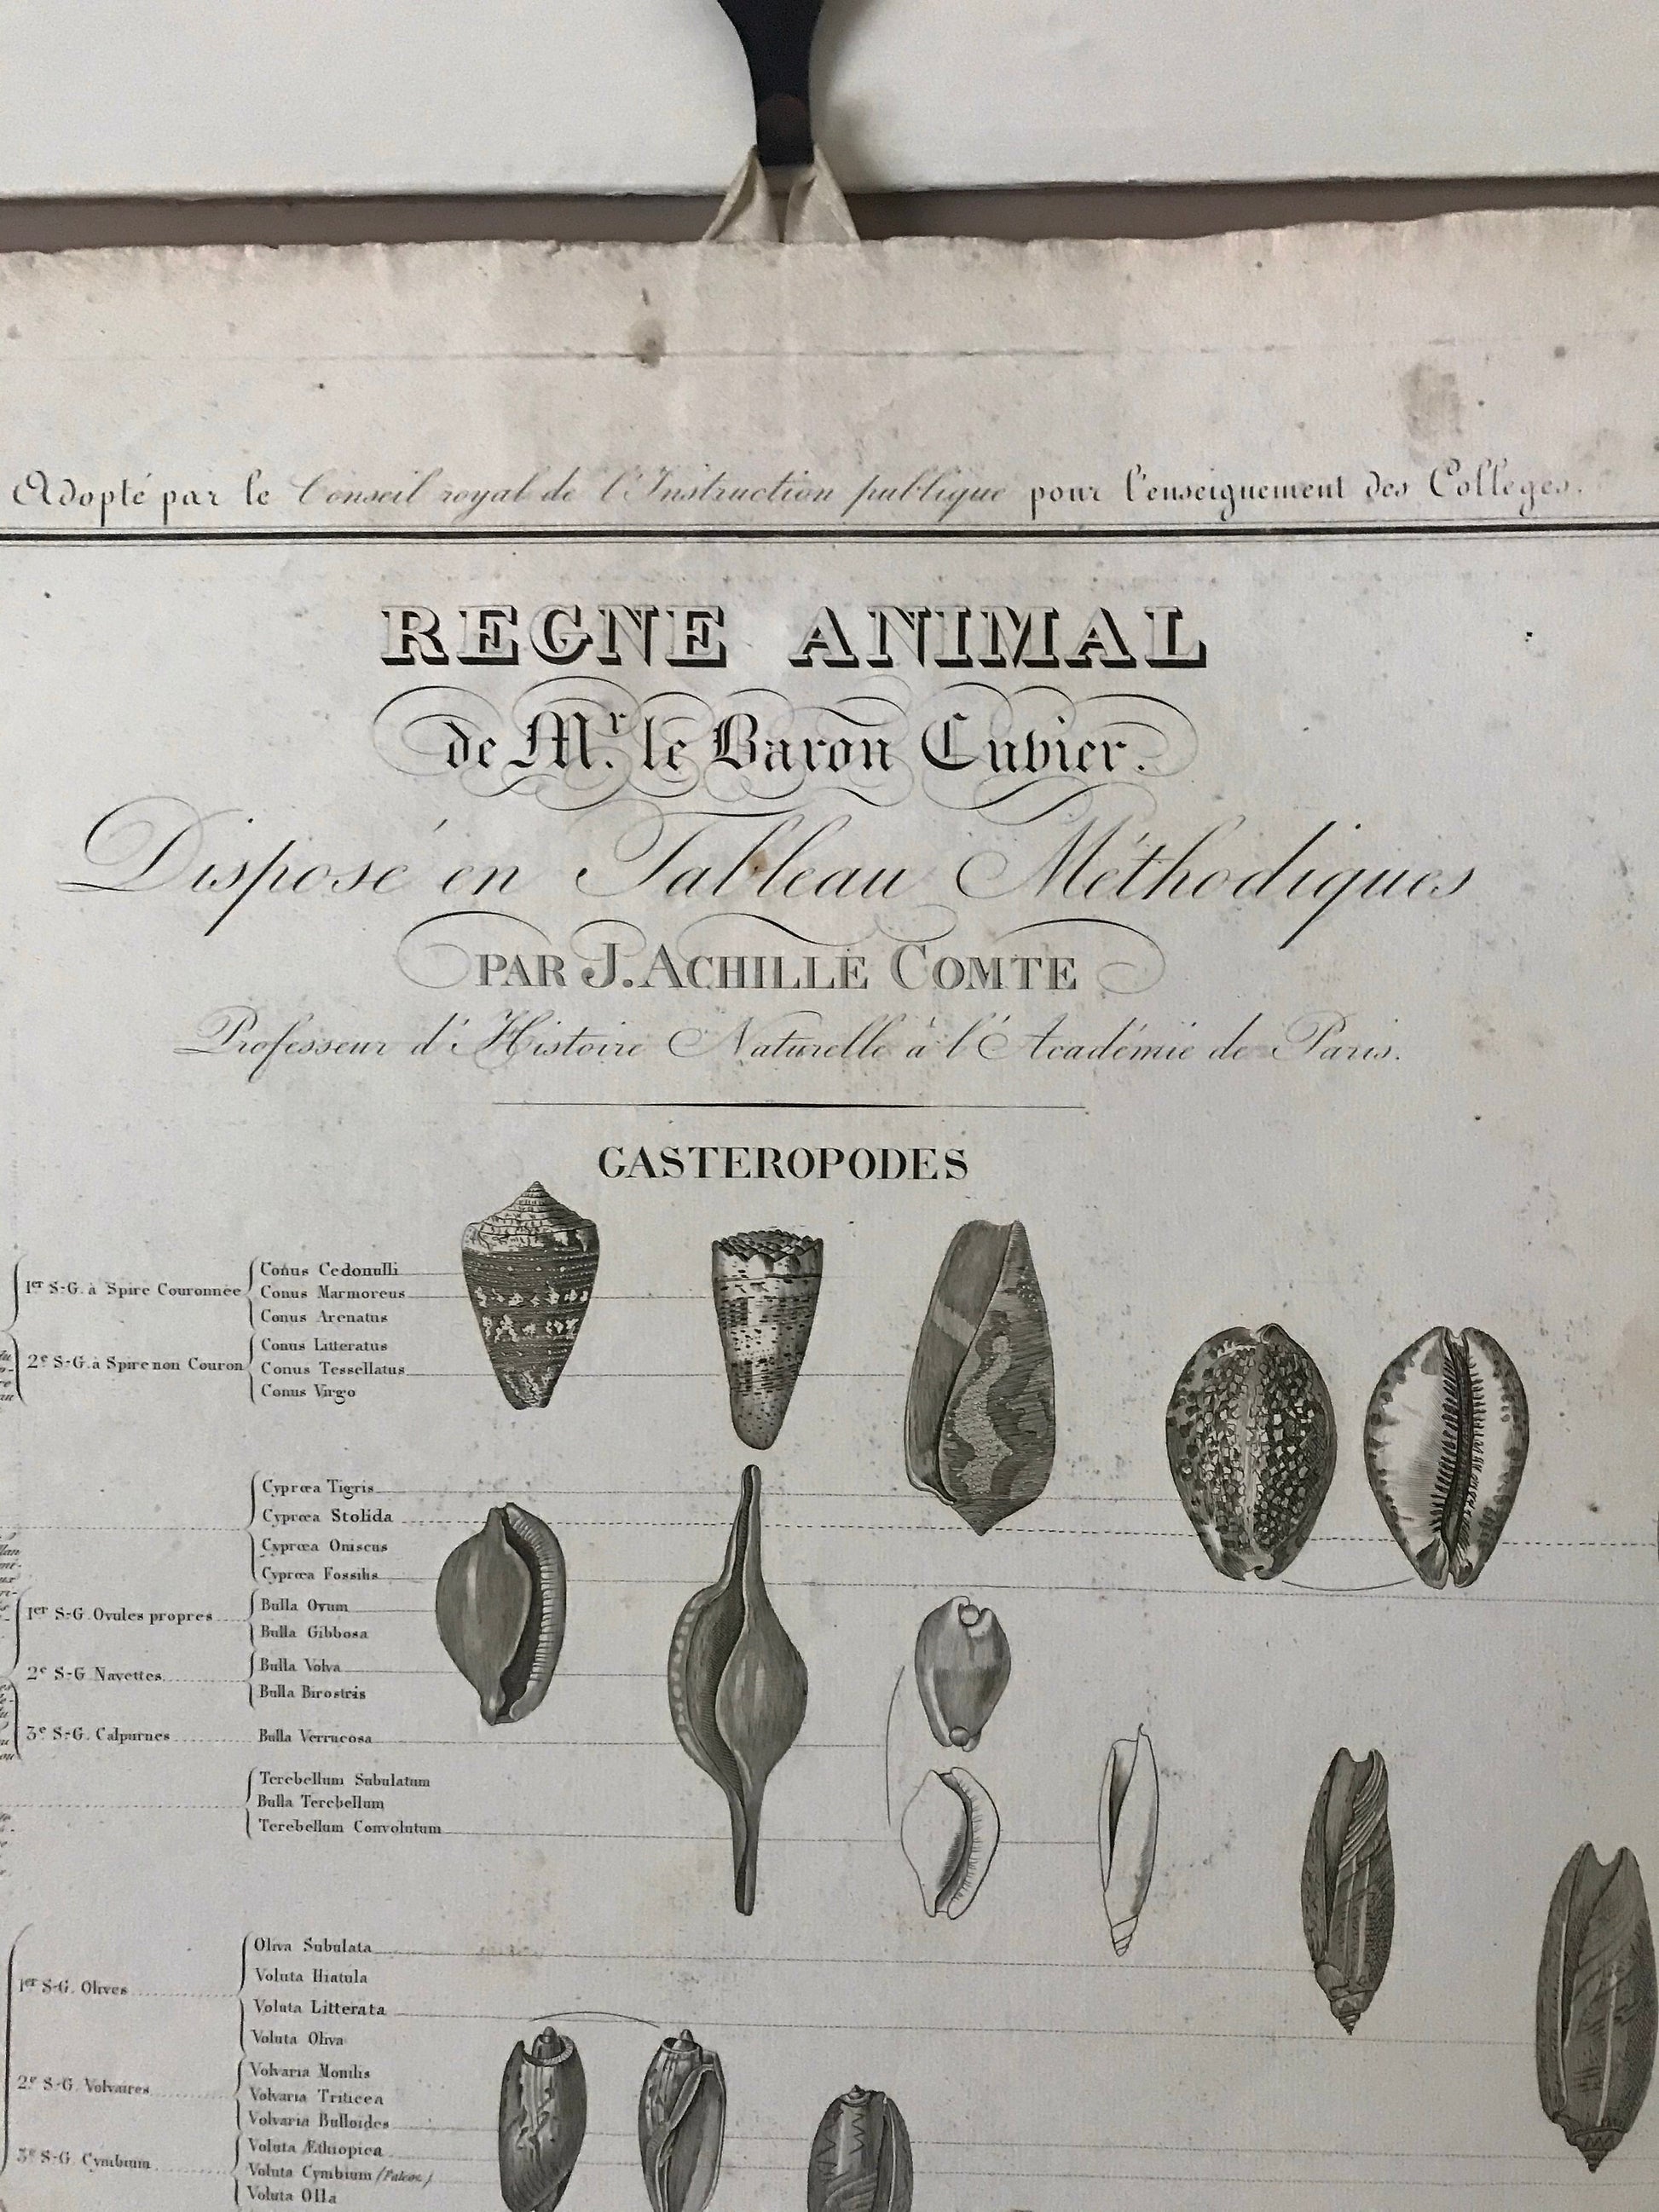 Adopté par le Conseil royal de l'Instruction publique pour l'enseignement des Colléges.
REGNE ANIMAL
de Mr. le Baron Cuvier.
Disposé en Tableau Méthodiques
PAR J. ACHILLE COMTE
Professeur d'Histoire Naturelle à l'Académie de Paris.
GASTEROPODES
1er S-G. à Spire Couronnée
Conus Cedonulli
Conus Marmoreus
Conus Arenatus
2e S-G. à Spire non Couron
Conus Litteratus
Conus Tessellatus
Conus Virgo
Cyprœa Tigris
Cyprœa Stolida
Cyprœa Oniscus
Cyprœa Fossilis
1er S-G. Ovules propres
Bulla Ovum
Bulla Gibbosa
2e S-G. Navettes
Bulla Volva
Bulla Birostris
3e S-G. Calpurnes
Bulla Verrucosa
Terebellum Subulatum
Bulla Terebellum
Terebellum Convolutum
1er S-G. Olives
Oliva Subulata
Voluta Hiatula
Voluta Litterata
Voluta Oliva
2e S-G. Volvaires
Volvaria Monilis
Volvaria Triticea
Volvaria Bulloides
3e S-G. Cymbium
Voluta Æthiopica
Voluta Cymbium
Voluta Olla